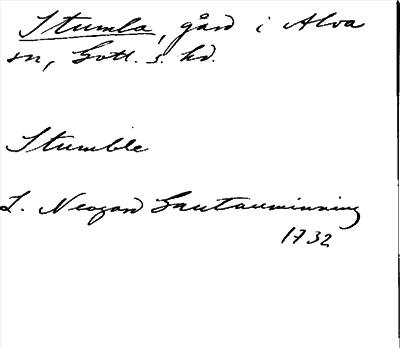 Stumla, gård i Alva
sn, Gotl. s. hd.
Stumble
L. Neogard Gautauminning
1732